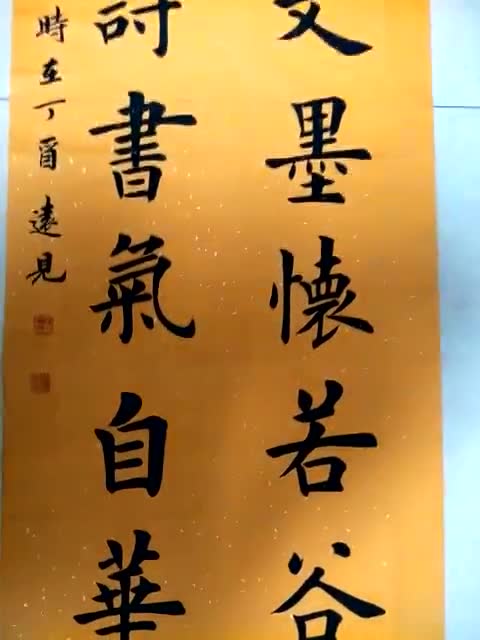 文墨懷若谷
詩書氣自華
時在丁酉 遠見